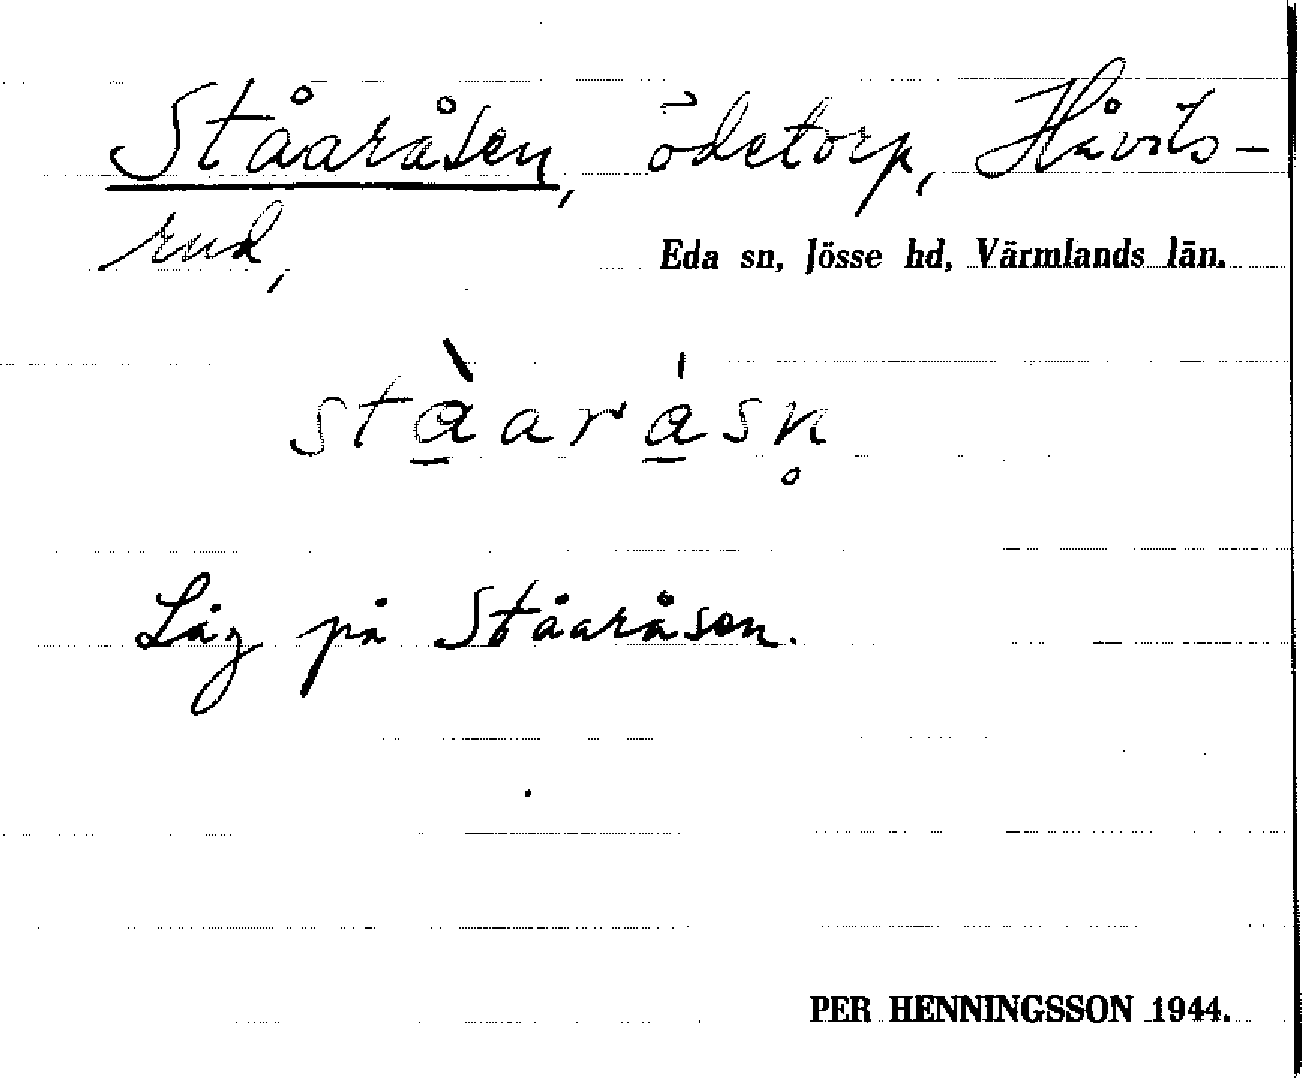 Ståaråsen, ödetorp, Håvils-
rud,
Eda sn, Jösse hd, Värmlands län.
stàarásn̥
Låg på Ståaråsen.
PER HENNINGSSON 1944.